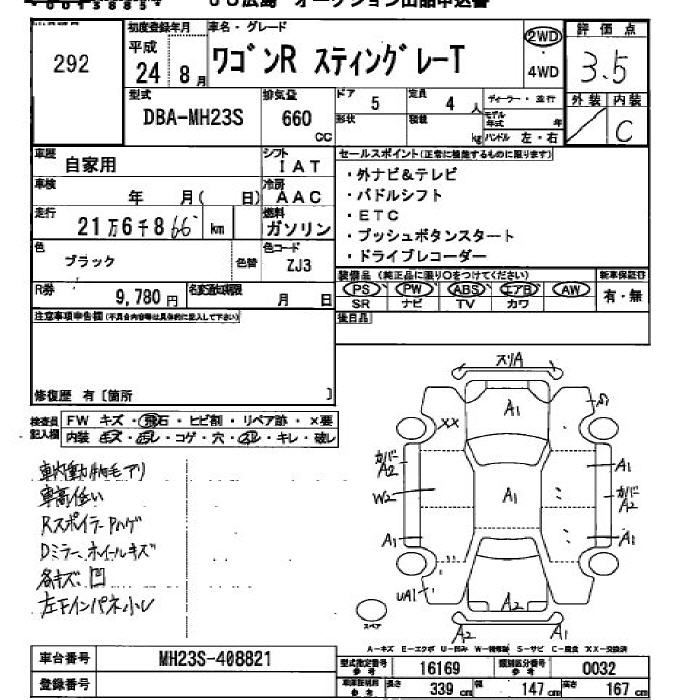 292
初度登録年月 平成 24年 8月
車名・グレード ワゴンR スティングレーT
2WD ・ 4WD
評価点 3.5
型式 DBA-MH23S
排気量 660 CC
ドア 5
定員 4 人
形状
積載 kg
ディーラー・並行
モデル年式 年
ハンドル 左・右
外装
内装 C
車歴 自家用
シフト IAT
車検 年 月( 日)
冷房 AAC
走行 21万6千866 km
燃料 ガソリン
色 ブラック
色替
色コード ZJ3
R券 9,780 円
名変通知期限 月 日
セールスポイント(正常に機能するものに限ります)
・外ナビ&テレビ
・パドルシフト
・ETC
・プッシュボタンスタート
・ドライブレコーダー
装備品 (純正品に限り○をつけてください)
新車保証書
PS PW ABS エアB AW
SR ナビ TV カワ
有・無
後日品
注意事項申告欄(不具合内容等は具体的に記入して下さい)
修復歴 有〔箇所 〕
検査員記入欄
FW キズ・飛石・ヒビ割・リペア跡・×要
内装 キズ・汚レ・コゲ・穴・スレ・キレ・破レ
車高低い
RスポイラーPハゲ
Dミラー、ホイールキズ
各キズ、凹
スリA
A1
XX
カバー A2
A1
W2
A1
カバー A2
A1
A1
UA1
A2
A2 A1
スペア
A-キズ E-エクボ U-凹み W-補修跡 S-サビ C-腐食 XX-交換済
車台番号 MH23S-408821
登録番号
型式指定番号 参考 16169
類別区分番号 参考 0032
車体証明書 参考 長さ 339 cm 幅 147 cm 高さ 167 cm